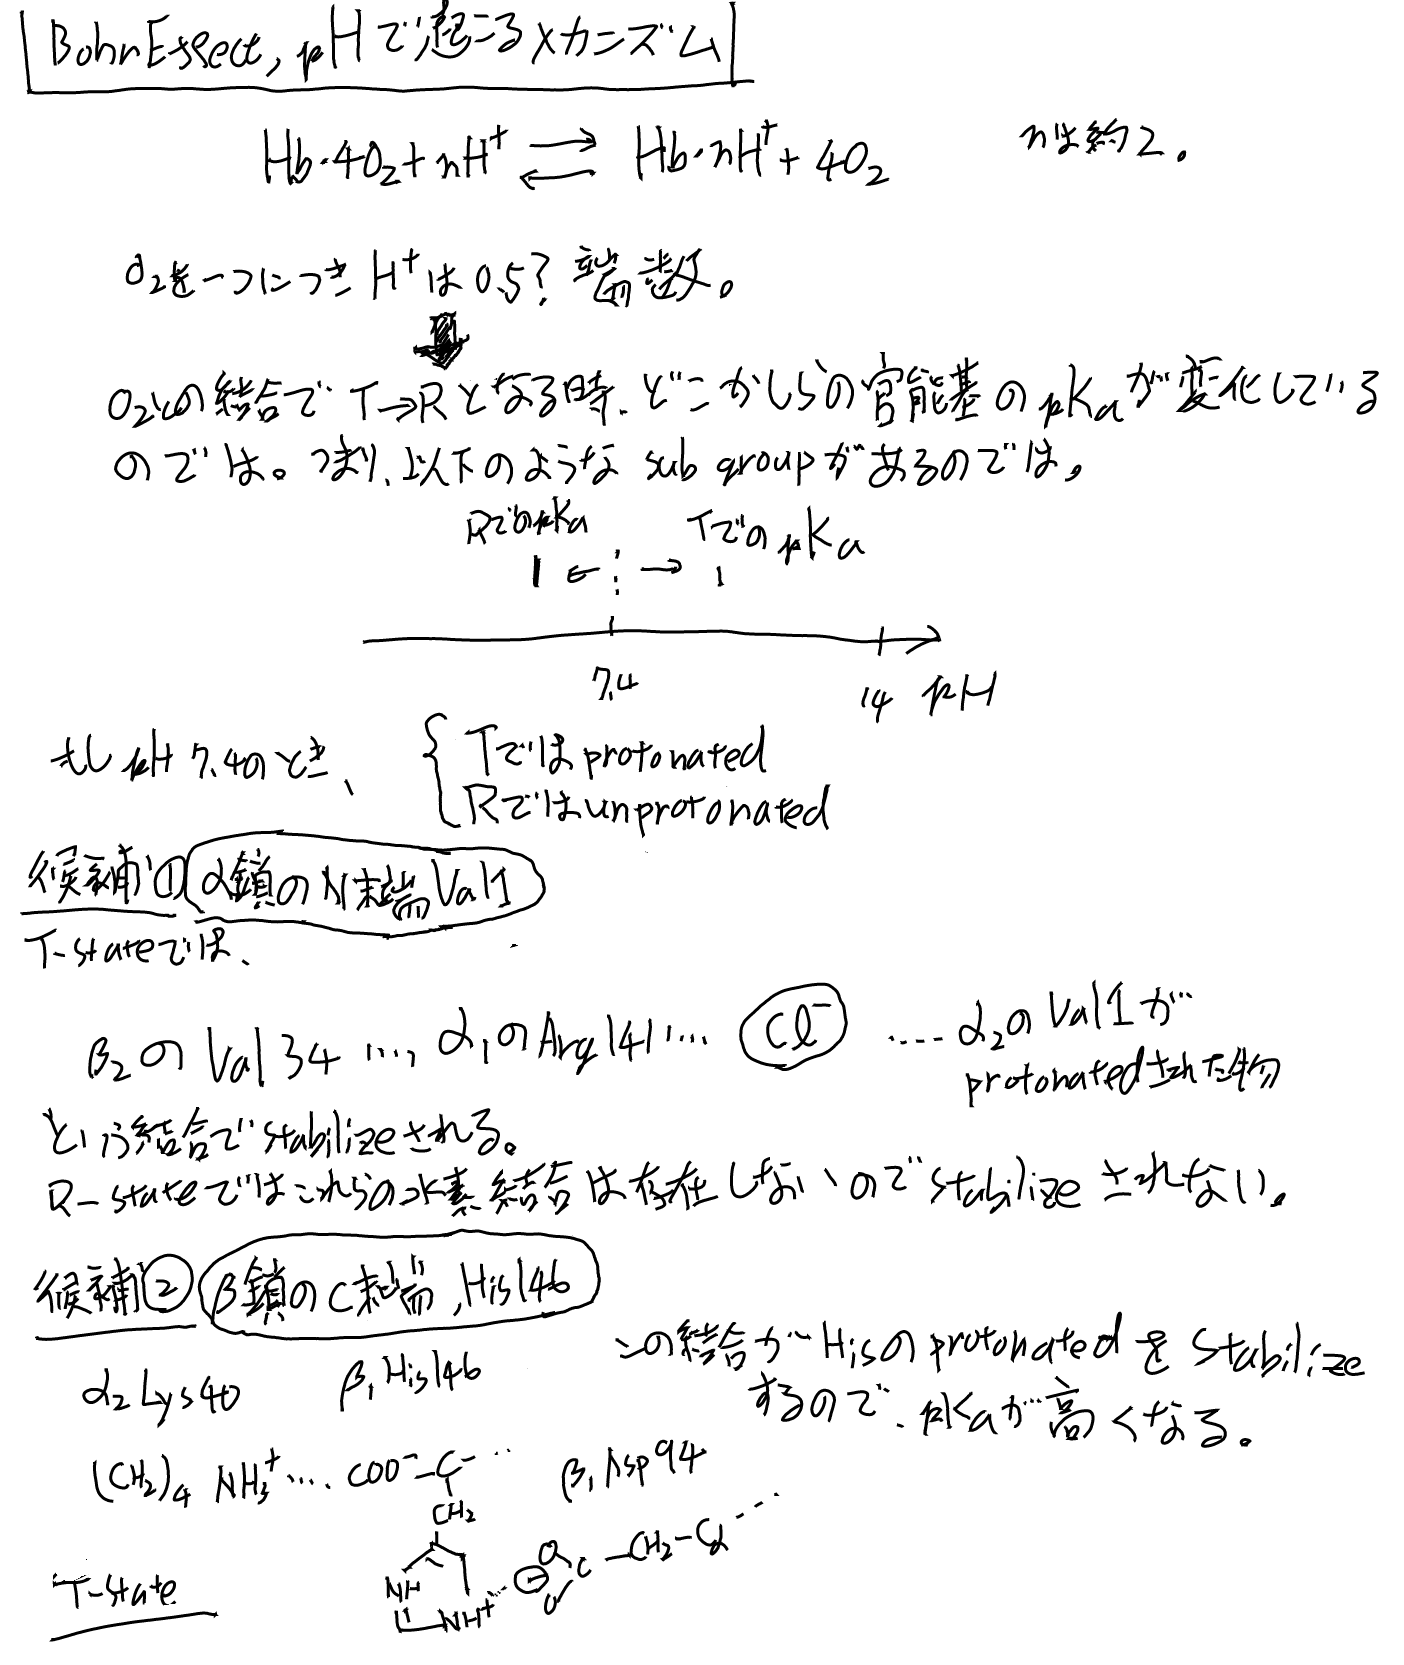 Bohr Effect, pHで起こるメカニズム
Hb・4O₂ + nH⁺ ⇌ Hb・nH⁺ + 4O₂
nは約2。
O₂を一つにつき H⁺は0.5? 端数。
O₂との結合で T→Rとなる時、どこかしらの官能基のpKaが変化している
のでは。つまり、以下のような sub groupがあるのでは。
RでのpKa TでのpKa
← →
7.4 14 pH
もし pH 7.4のとき、
Tでは protonated
Rでは unprotonated
候補① α鎖のN末端 Val1
T-stateでは、
β₂の Val 34 ···, α₁のArg 141 ··· Cl⁻ ···· α₂の Val1が
protonatedされた物
という結合で stabilizeされる。
R-stateではこれらの水素結合は存在しないのでstabilizeされない。
候補② β鎖のC末端, His146
この結合が Hisの protonatedを stabilize
するので、pKaが高くなる。
α₂ Lys 40 β₁ His146
(CH₂)₄ NH₃⁺ ···· COO⁻-C-···
β₁ Asp 94
CH₂
O C -CH₂-Cα ···
NH ⊖ O
NH⁺
T-state